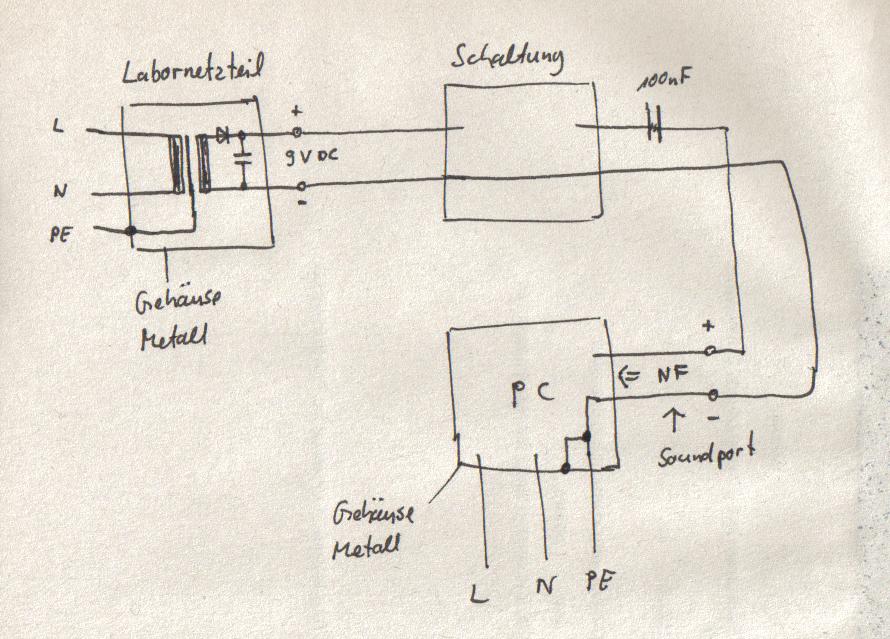 Labornetzteil
Schaltung
100nF
L
+
9V DC
N
-
PE
Gehäuse
Metall
+
PC
<= NF
-
Soundport
Gehäuse
Metall
L N PE